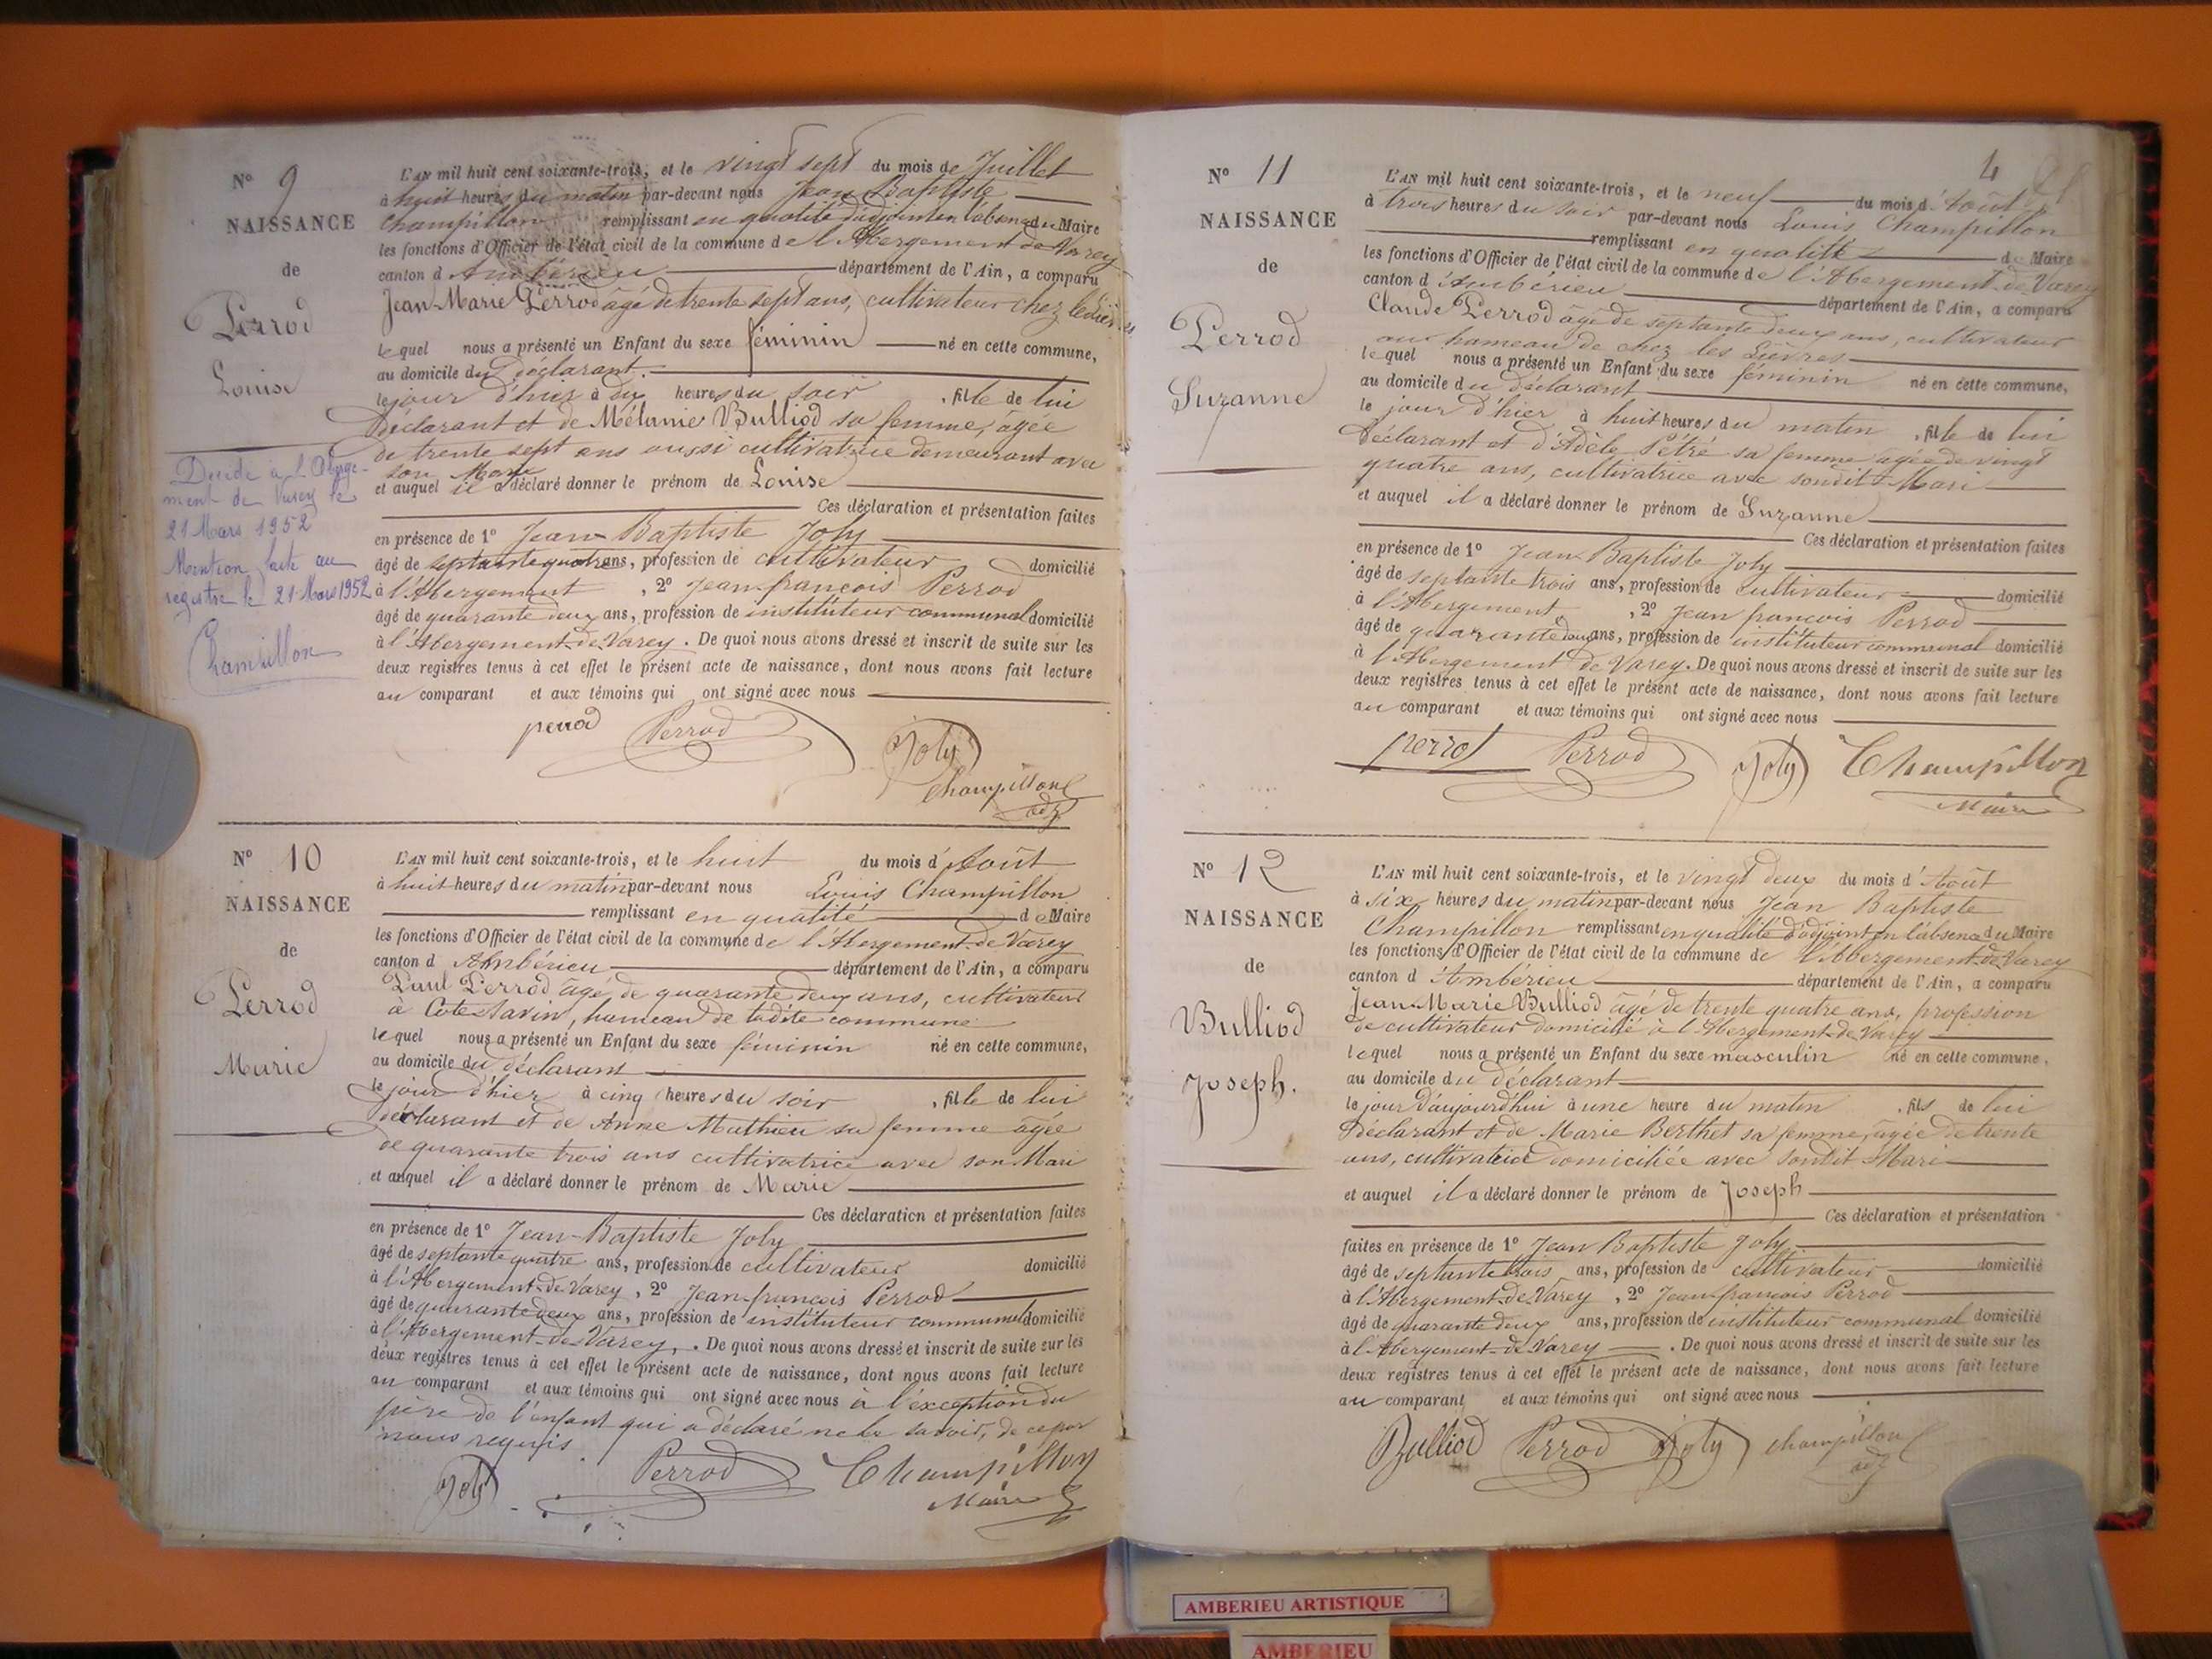 N° 9
NAISSANCE
de
Perrod
Louise
Décédé à L'Aberge-
ment de Varey le
21 Mars 1952
Mention faite au
registre le 21 Mars 1952
Champillon
L'AN mil huit cent soixante-trois, et le vingt sept du mois de Juillet
à huit heures du matin par-devant nous Jean Baptiste
Champillon remplissant en qualité d'adjoint en l'absence du Maire
les fonctions d'Officier de l'état civil de la commune de l'Abergement-de-Varey
canton d'Ambérieu département de l'Ain, a comparu
Jean-Marie Perrod âgé de trente sept ans, cultivateur chez les Lièvres
lequel nous a présenté un Enfant du sexe féminin né en cette commune,
au domicile du déclarant
le jour d'hier à six heures du soir, fille de lui
déclarant et de Mélanie Bulliod sa femme, âgée
de trente sept ans aussi cultivatrice demeurant avec
son Mari
et auquel il a déclaré donner le prénom de Louise
Ces déclaration et présentation faites
en présence de 1° Jean-Baptiste Joly
âgé de septante quatre ans, profession de cultivateur domicilié
à l'Abergement, 2° Jean-françois Perrod
âgé de quarante deux ans, profession de instituteur communal domicilié
à l'Abergement-de-Varey. De quoi nous avons dressé et inscrit de suite sur les
deux registres tenus à cet effet le présent acte de naissance, dont nous avons fait lecture
au comparant et aux témoins qui ont signé avec nous
perrod Perrod Joly
Champillon
adj
N° 10
NAISSANCE
de
Perrod
Marie
L'AN mil huit cent soixante-trois, et le huit du mois d'Août
à huit heures du matin par-devant nous Louis Champillon
remplissant en qualité de Maire
les fonctions d'Officier de l'état civil de la commune de l'Abergement-de-Varey
canton d'Ambérieu département de l'Ain, a comparu
Paul Perrod âgé de quarante deux ans, cultivateur
à Cote-Savin, hameau de ladite commune
lequel nous a présenté un Enfant du sexe féminin né en cette commune,
au domicile du déclarant
le jour d'hier à cinq heures du soir, fille de lui
déclarant et de Anne Mathieu sa femme âgée
de quarante trois ans cultivatrice avec son Mari
et auquel il a déclaré donner le prénom de Marie
Ces déclaration et présentation faites
en présence de 1° Jean-Baptiste Joly
âgé de septante quatre ans, profession de cultivateur domicilié
à l'Abergement-de-Varey, 2° Jean-françois Perrod
âgé de quarante deux ans, profession de instituteur communal domicilié
à l'Abergement-de-Varey. De quoi nous avons dressé et inscrit de suite sur les
deux registres tenus à cet effet le présent acte de naissance, dont nous avons fait lecture
au comparant et aux témoins qui ont signé avec nous à l'exception du
père de l'enfant qui a déclaré ne le savoir, de ce par
nous requis
Joly Perrod Champillon
Maire
4
N° 11
NAISSANCE
de
Perrod
Suzanne
L'AN mil huit cent soixante-trois, et le neuf du mois d'Août
à trois heures du soir par-devant nous Louis Champillon
remplissant en qualité de Maire
les fonctions d'Officier de l'état civil de la commune de l'Abergement-de-Varey
canton d'Ambérieu département de l'Ain, a comparu
Claude Perrod âgé de septante deux ans, cultivateur
au hameau de chez les Lièvres
lequel nous a présenté un Enfant du sexe féminin né en cette commune,
au domicile du déclarant
le jour d'hier à huit heures du matin, fille de lui
déclarant et d'Adèle Pétré sa femme âgée de vingt
quatre ans, cultivatrice avec sondit Mari
et auquel il a déclaré donner le prénom de Suzanne
Ces déclaration et présentation faites
en présence de 1° Jean-Baptiste Joly
âgé de septante trois ans, profession de cultivateur domicilié
à l'Abergement, 2° Jean françois Perrod
âgé de quarante deux ans, profession de instituteur communal domicilié
à l'Abergement de Varey. De quoi nous avons dressé et inscrit de suite sur les
deux registres tenus à cet effet le présent acte de naissance, dont nous avons fait lecture
au comparant et aux témoins qui ont signé avec nous
perrod Perrod Joly Champillon
Maire
N° 12
NAISSANCE
de
Bulliod
Joseph.
L'AN mil huit cent soixante-trois, et le vingt deux du mois d'Août
à six heures du matin par-devant nous Jean Baptiste
Champillon remplissant en qualité d'adjoint en l'absence du Maire
les fonctions d'Officier de l'état civil de la commune de l'Abergement-de-Varey
canton d'Ambérieu département de l'Ain, a comparu
Jean-Marie Bulliod âgé de trente quatre ans, profession
de cultivateur domicilié à l'Abergement-de-Varey
lequel nous a présenté un Enfant du sexe masculin né en cette commune,
au domicile du déclarant
le jour d'aujourd'hui à une heure du matin, fils de lui
déclarant et de Marie Berthet sa femme, âgée de trente
ans, cultivatrice domiciliée avec sondit Mari
et auquel il a déclaré donner le prénom de Joseph
Ces déclaration et présentation
faites en présence de 1° Jean Baptiste Joly
âgé de septante trois ans, profession de cultivateur domicilié
à l'Abergement-de-Varey, 2° Jean-francois Perrod
âgé de quarante deux ans, profession de instituteur communal domicilié
à l'Abergement-de-Varey. De quoi nous avons dressé et inscrit de suite sur les
deux registres tenus à cet effet le présent acte de naissance, dont nous avons fait lecture
au comparant et aux témoins qui ont signé avec nous
Bulliod Perrod Joly Champillon
adj
AMBERIEU ARTISTIQUE
AMBERIEU